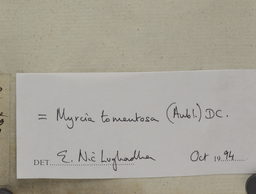 = Myrcia tomentosa (Aubl.) DC.
DET. E. Nic Lughadha Oct 1994